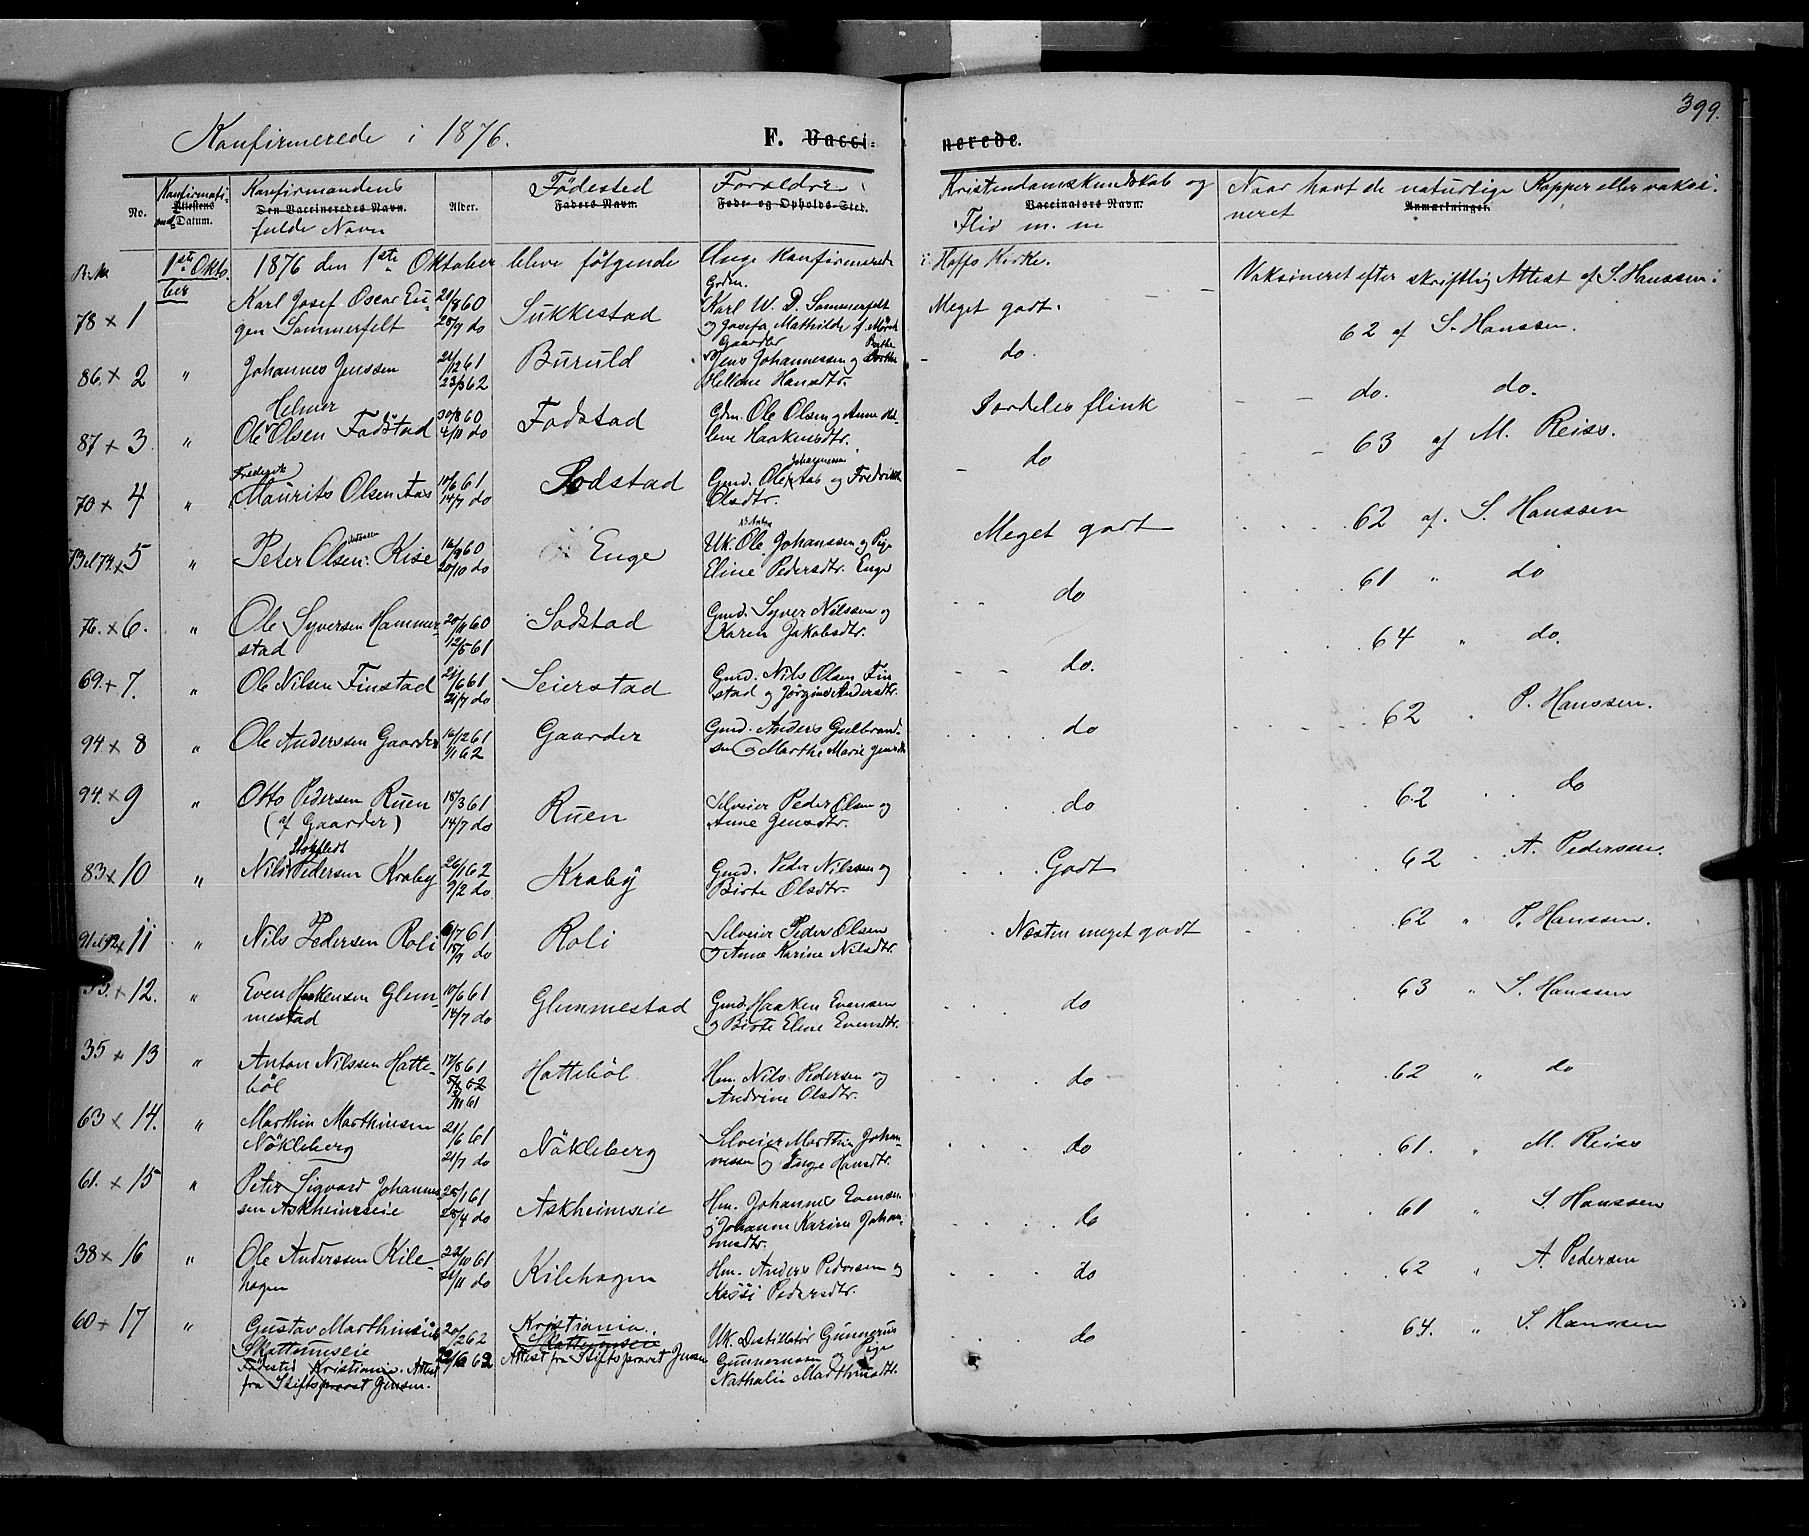 399.
Konfirmerede i 1876.
F. Vacci-
nerede.
No.
Konfirmati-
Attestens
Datum.
Konfirmandens
Den Vaccineredes Navn.
fulde Navn
Alder.
Fødested
Faders Navn.
Forældre
Føde- og Opholds-Sted.
Kristendomskundskab og
Vaccinators Navn.
Flid m. m
Naar havt de naturlige Kopper eller vaksi-
Anmærkninger.
neret
1ste Okto-
ber
1876 den 1ste Oktober bleve følgende Unge konfirmerede i Hoffs Kirke.
Vaksineret efter skriftlig Attest af S. Hanssen:
78 x 1
Karl Josef Oscar Eu-
gen Sommerfelt
21/8 60
28/9 do
Sukkestad
Gdm.
Karl W. D. Sommerfelt
og Josefa Mathilde f. Mørch
Meget godt.
62 af S. Hanssen.
86. x 2 "
Johannes Jenssen
21/12 61
23/3 62
Buruld
Gaarder
Jens Johannessen og Birthe
Hellene Hansdtr.
do.
do. do.
87 x 3. "
Helmer
Ole Olsen Fodstad
30/8 60
4/11 do
Fodstad
Gdm. Ole Olsen og Anne He-
lene Haakensdtr.
Særdeles flink
63 af M. Reiss.
70 x 4 "
Frederik
Maurits Olsen Aas
10/6 61
14/7 do
Sodstad
Johannesen
Gmd. Ole Aas og Fredrikke
Olsdtr.
do
62 af. S. Hanssen
x 5 "
Peter Olsen Kise
16/9 60
20/10 do
Enge
Uk. Ole Johanssen og Pige
Eline Pedersdtr. Enge
Meget godt
61 " do
76. x 6. "
Ole Syversen Hammer-
stad
20/11 60
12/5 61
Sodstad
Gmd. Syver Nilssen og
Karen Jakobsdtr.
do
64 " do.
69. + 7. "
Ole Nilsen Finstad
21/6 61
21/7 do
Seierstad
Gmd. Nils Olsen Fin-
stad og Jørgine Andersdtr.
do.
62 " P. Hanssen.
94 x 8 "
Ole Anderssen Gaarder
16/12 61
1/1 62
Gaarder
Gmd. Anders Gulbrand-
sen og Marthe Marie Jensdtr
do
62 " do
94. x 9 "
Otto Pedersen Ruen
(af Gaarder)
18/3 61
14/7 do
Ruen
Selveier Peder Olsen og
Anne Jensdtr.
do
62 " A. Pedersen.
83 x 10 "
Nils Pedersen Kraby
26/1 62
9/2 do
Kraby
Gmd. Peder Nilssen og
Birte Olsdtr.
Godt
62 " P. Hanssen.
x 11 "
Nils Pedersen Roli
/7 61
15/9 do
Roli
Selveier Peder Olsen
og Anne Karine Nilsdtr.
Næsten meget godt
63 " S. Hanssen
x 12. "
Even Haakensen Glem-
mestad
10/6 61
14/7 do
Glemmestad
Gmd. Haaken Evensen
og Birte Eline Evensdtr.
do
62 " do
35 x 13 "
Anton Nilssen Hatte-
böl
17/8 61
/11 61
Hattebøl
Hm. Nils Pedersen og
Andrine Olsdtr.
do
61. " M. Reiss
63 x 14. "
Marthin Marthinsen
Nökleberg
21/6 61
21/7 do
Nökleberg
Selveier Marthin Johan-
nessen og Inge Hansdtr.
do
61 " S. Hanssen
61. x 15 "
Peter Sigvard Johannes-
sen Askheimseie
28/1 61
28/4 do
Askheimseie
Hm. Johannes Evensen
og Johanne Karine Johan-
nesdtr.
do
62 " A. Pedersen
38 x 16 "
Ole Anderssen Kile-
hagen
22/10 61
/11 do
Kilehagen
Hm. Anders Pedersen og
Kassi Pedersdtr.
do
64. " S. Hanssen
60 + 17 "
Gustav Marthinius
Skattumseie
Fødested Kristiania. Attest
fra Stiftsprovst Jensen.
20/2 62
22/6 62
Kristiania.
Skattumseie
Attest fra Stiftsprovst Jensen
Uk. Destillatør Gunnerius
Gunnersen og Pige
Nathalie Marthinsdtr.
do